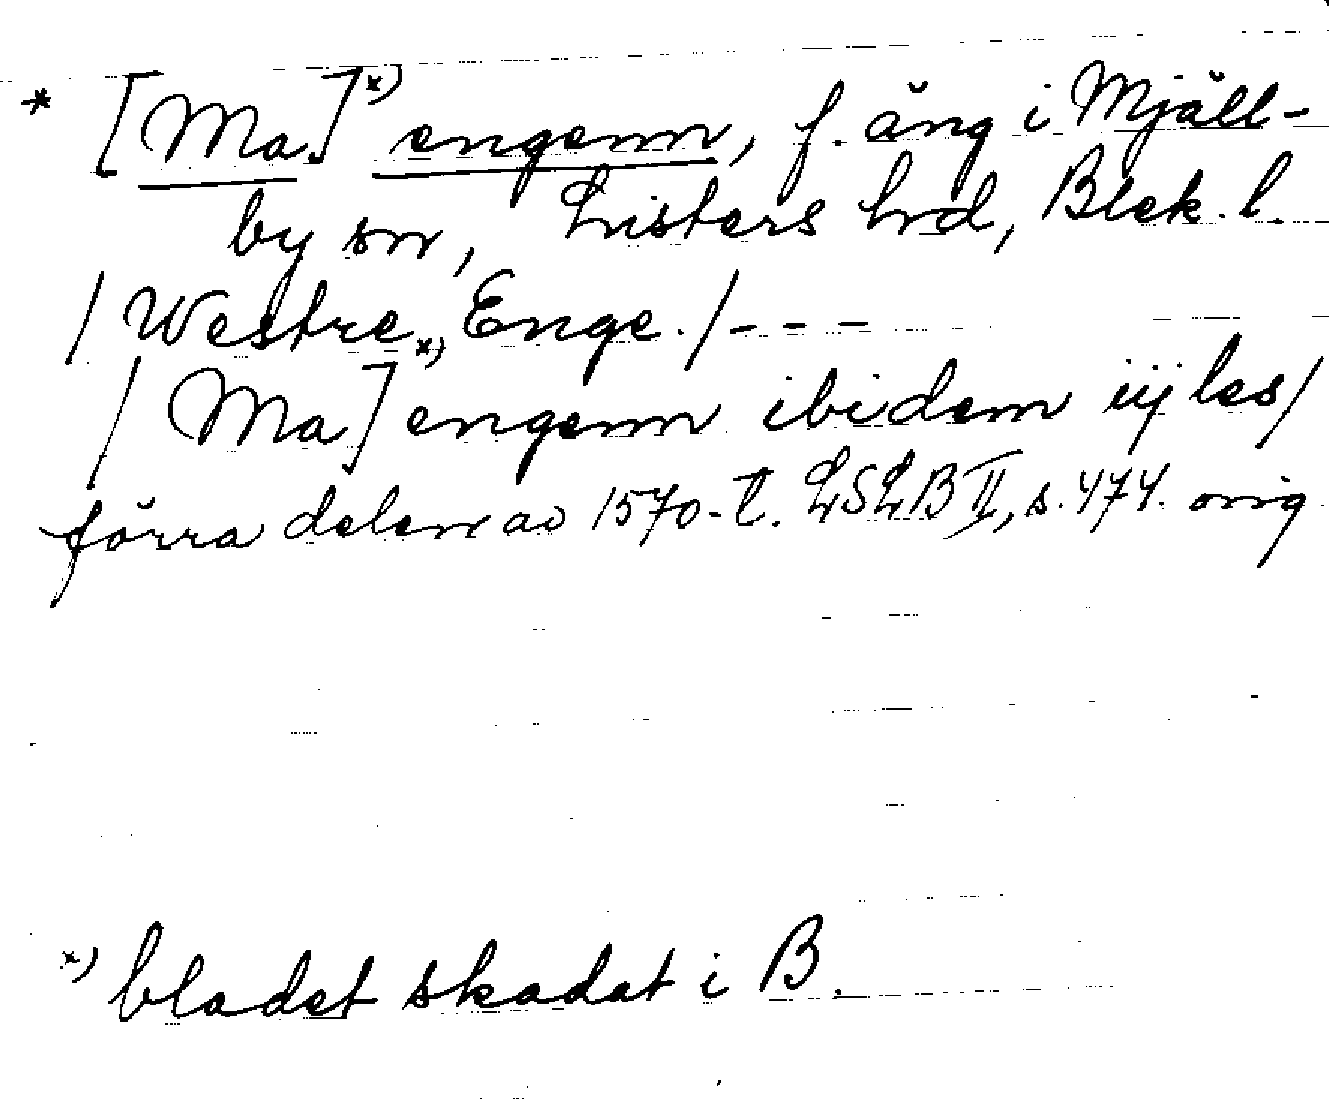 * [Ma.]*) engenn, f. äng i Mjäll-
by sn, Listers hrd, Blek. l.
/ Westre Enge. / - - -
/ Ma]*) engenn ibidem iij les/
förra delen av 1570-t. LSLB II, s. 474. orig
*) bladet skadat i B.